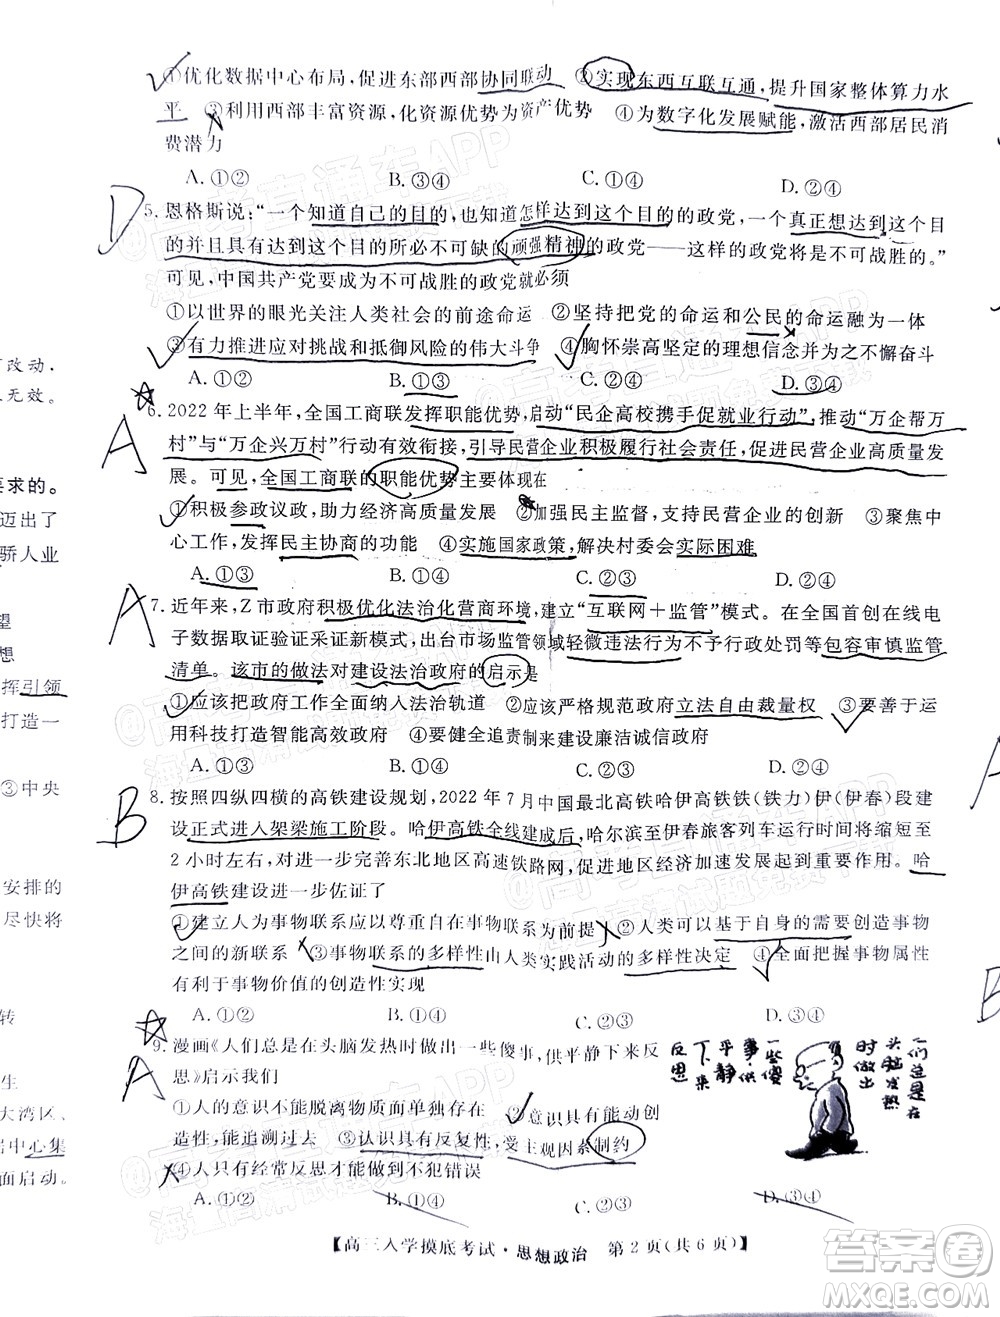 ①优化数据中心布局,促进东部西部协同联动　②实现东西互联互通,提升国家整体算力水
平　③利用西部丰富资源,化资源优势为资产优势　④为数字化发展赋能,激活西部居民消
费潜力
A.①②　B.③④　C.①④　D.②④
D
5. 恩格斯说:“一个知道自己的目的,也知道怎样达到这个目的的政党,一个真正想达到这个
目的并且具有达到这个目的所必不可缺的顽强精神的政党——这样的政党将是不可战胜的。”
可见,中国共产党要成为不可战胜的政党就必须
①以世界的眼光关注人类社会的前途命运　②坚持把党的命运和公民的命运融为一体
③有力推进应对挑战和抵御风险的伟大斗争　④胸怀崇高坚定的理想信念并为之不懈奋斗
A.①②　B.①③　C.②④　D.③④
A
6. 2022年上半年,全国工商联发挥职能优势,启动“民企高校携手促就业行动”,推动“万企帮万
村”与“万企兴万村”行动有效衔接,引导民营企业积极履行社会责任,促进民营企业高质量发
展。可见,全国工商联的职能优势主要体现在
①积极参政议政,助力经济高质量发展　②加强民主监督,支持民营企业的创新　③聚焦中
心工作,发挥民主协商的功能　④实施国家政策,解决村委会实际困难
A.①③　B.①④　C.②③　D.②④
A
7. 近年来,Z市政府积极优化法治化营商环境,建立“互联网＋监管”模式。在全国首创在线电
子数据取证验证采证新模式,出台市场监管领域轻微违法行为不予行政处罚等包容审慎监管
清单。该市的做法对建设法治政府的启示是
①应该把政府工作全面纳入法治轨道　②应该严格规范政府立法自由裁量权　③要善于运
用科技打造智能高效政府　④要健全追责制来建设廉洁诚信政府
A.①③　B.①④　C.②③　D.②④
B
8. 按照四纵四横的高铁建设规划,2022年7月中国最北高铁哈伊高铁铁(铁力)伊(伊春)段建
设正式进入架梁施工阶段。哈伊高铁全线建成后,哈尔滨至伊春旅客列车运行时间将缩短至
2小时左右,对进一步完善东北地区高速铁路网,促进地区经济社会发展有重要作用。哈
伊高铁建设进一步佐证了
①建立人为事物联系应以尊重自在事物联系为前提　②人类可以基于自身的需要创造事物
之间的新联系　③事物联系的多样性由人类实践活动的多样性决定　④全面把握事物属性
有利于事物价值的创造性实现
A.①②　B.①④　C.②③　D.③④
A
9. 漫画《人们总是在头脑发热时做出一些傻事,供平静下来反
思》启示我们
①人的意识不能脱离物质而单独存在　②意识具有能动创
造性,能追溯过去　③认识具有反复性,受主观因素制约
④人只有经常反思才能做到不犯错误
A.①②　B.①④　C.②③　D.③④
人们总是在
头脑发热
时做出
一些傻
事,供
平静
下来
反思
【高三入学摸底考试·思想政治　第2页(共6页)】
改动,
无效。
要求的。
迈出了
骄人业
望
想
挥引领
打造一
③中央
安排的
尽快将
转
生
大湾区、
中心集
面启动。
A
B
@高考直通车APP
答案圈
MXQE.COM